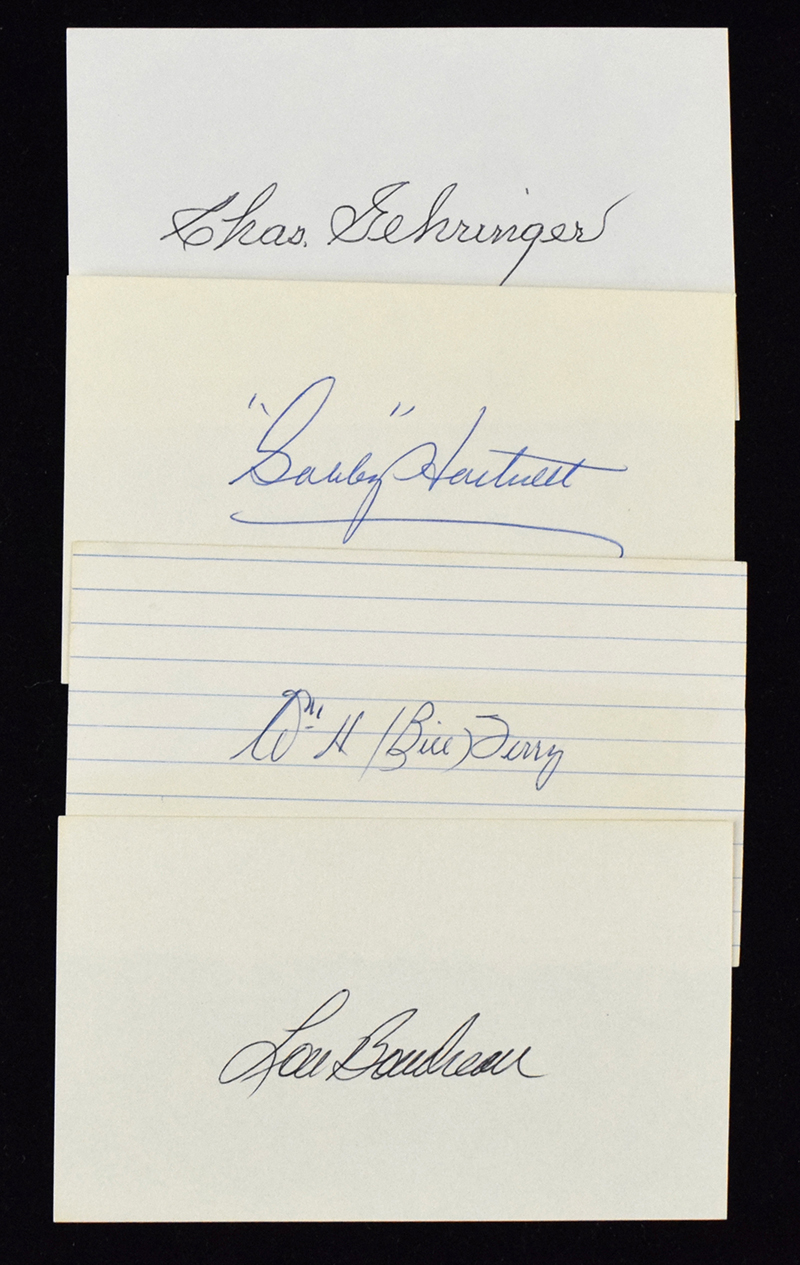 Chas. Gehringer
"Gabby" Hartnett
Wm H (Bill) Terry
Lou Boudreau